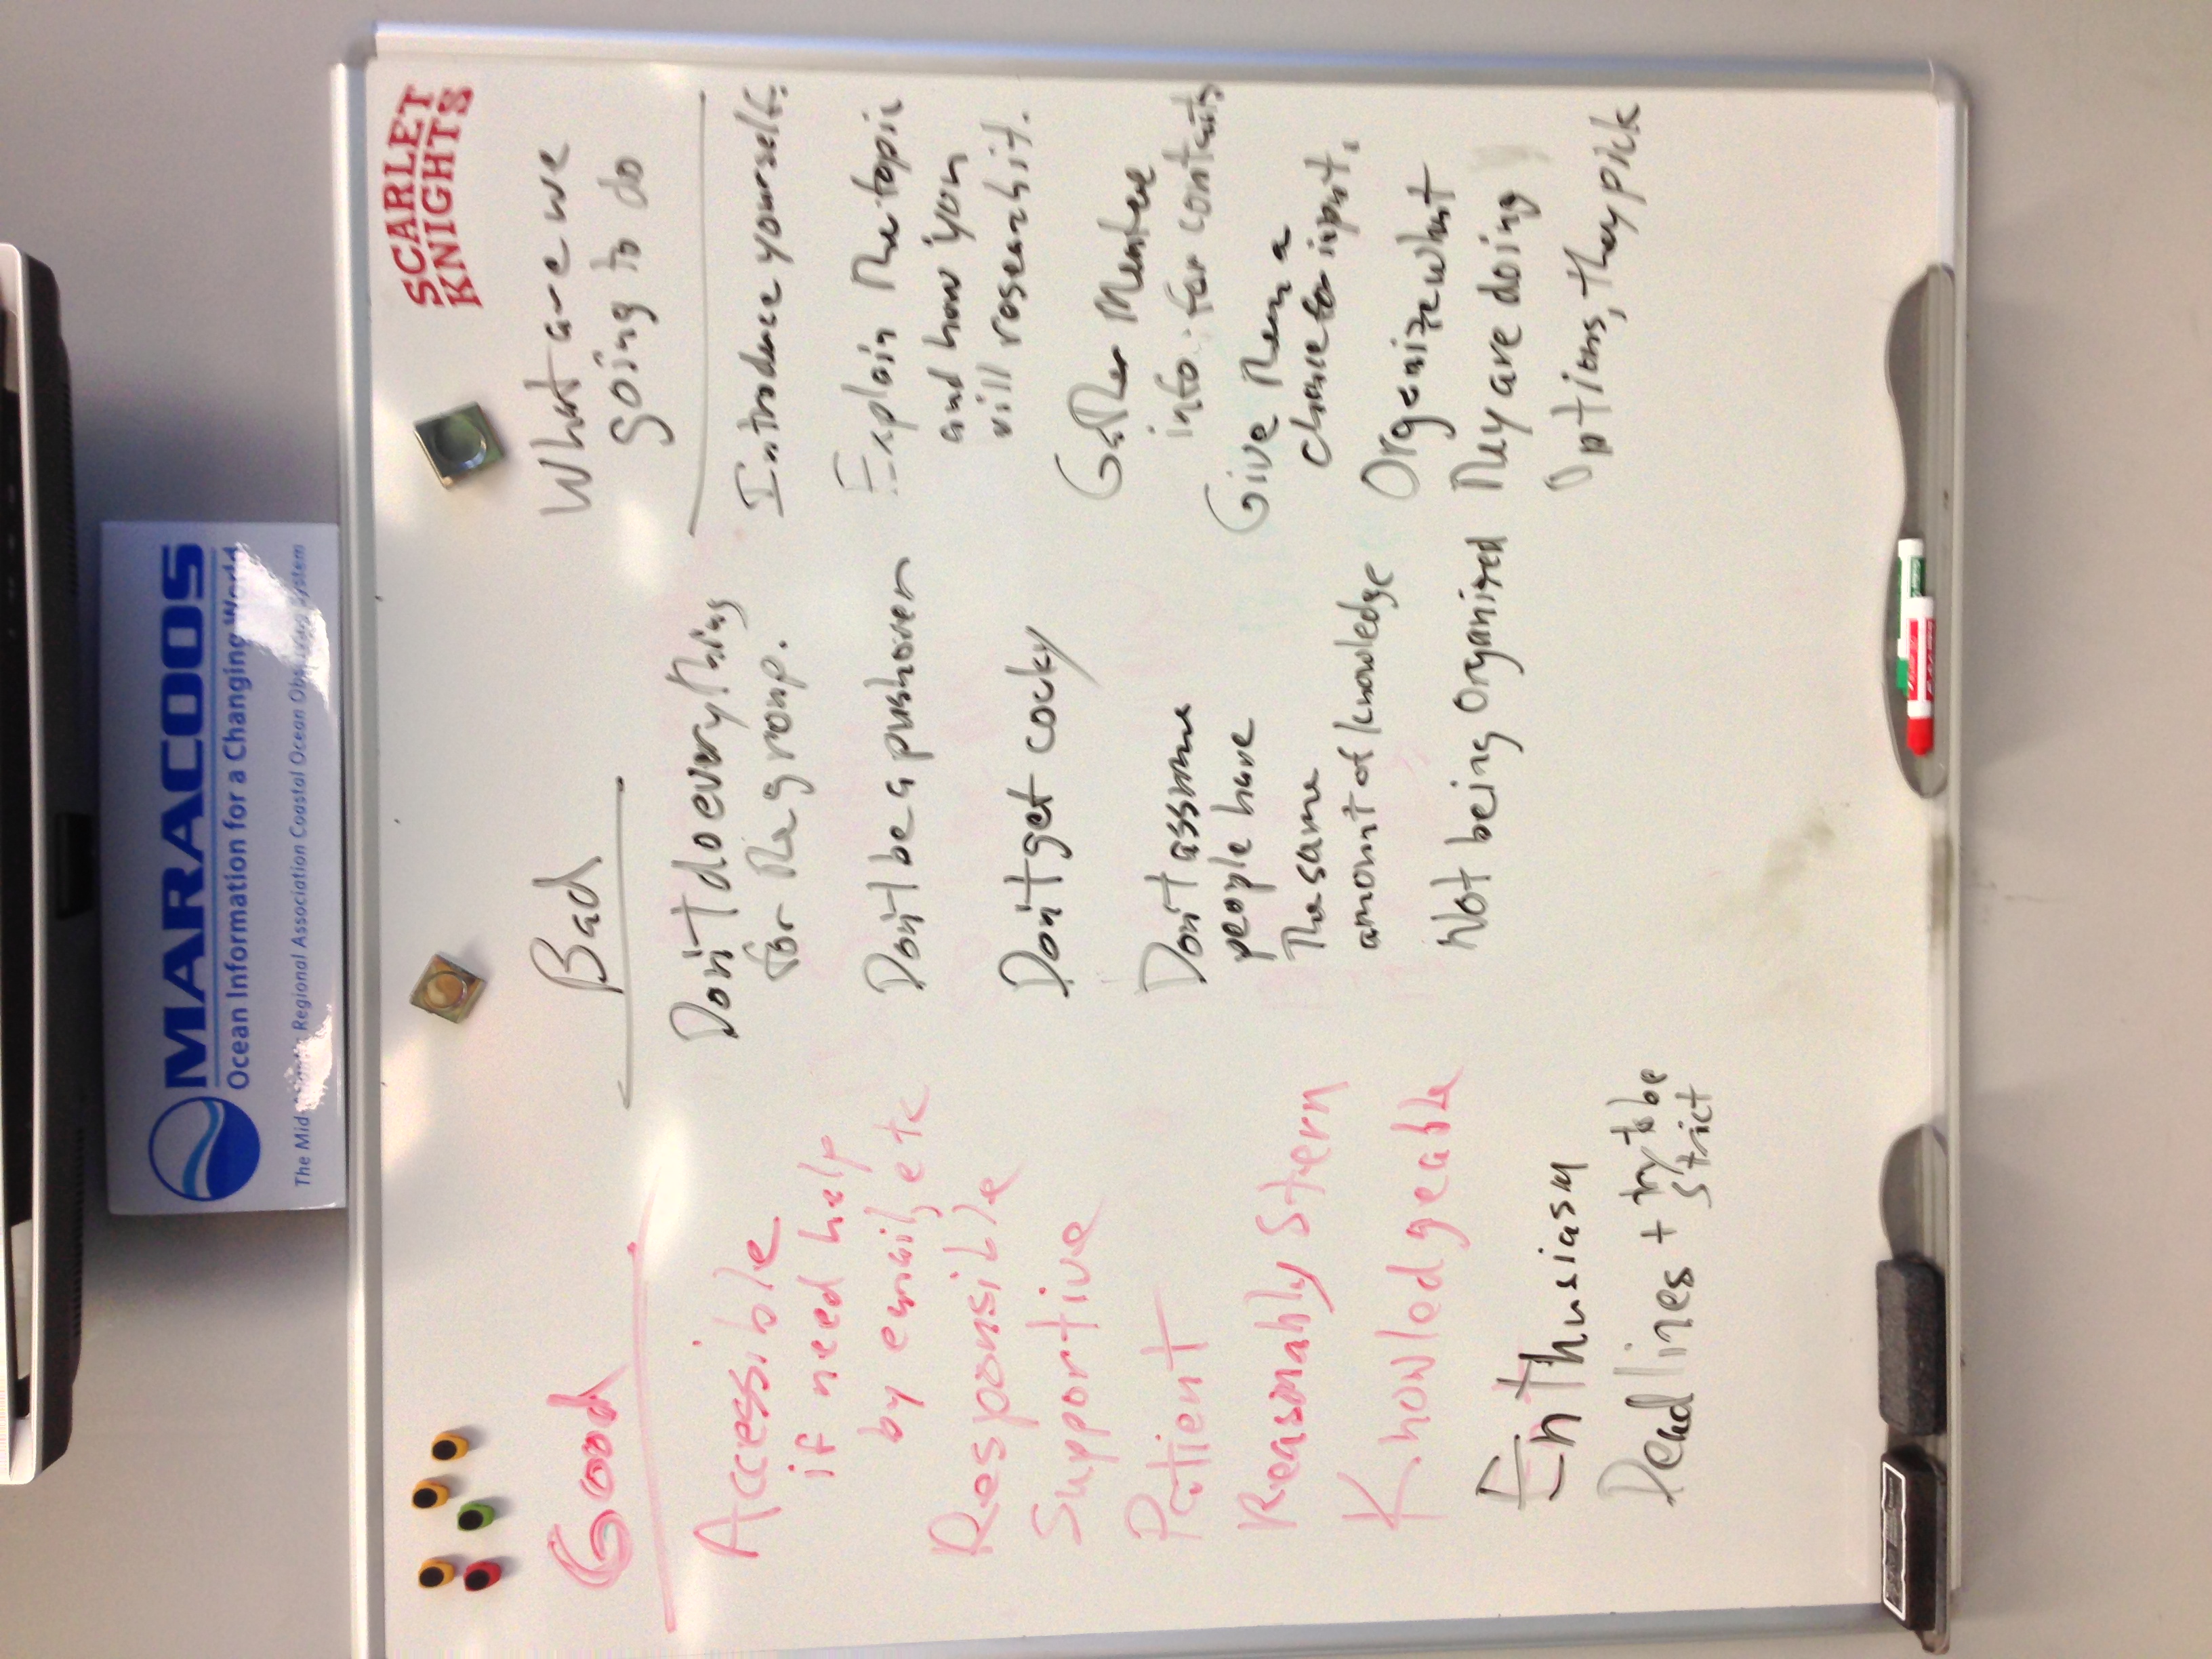 MARACOOS
Ocean Information for a Changing World
The Mid-Atlantic Regional Association Coastal Ocean Observing System
SCARLET
KNIGHTS
Good
Accessible
if need help
by email, etc
Responsible
Supportive
Patient
Reasonably Stern
Knowledgeable
Enthusiasm
Deadlines + try to be
strict
Bad
Don't do everything
for the group.
Don't be a pushover
Don't get cocky
Don't assume
people have
the same
amount of knowledge
Not being organized
What are we
going to do
Introduce yourself.
Explain the topic
and how you
will research it.
Gather Mentee
info. for contacts
Give them a
chance for input.
Organize what
they are doing
Options, they pick